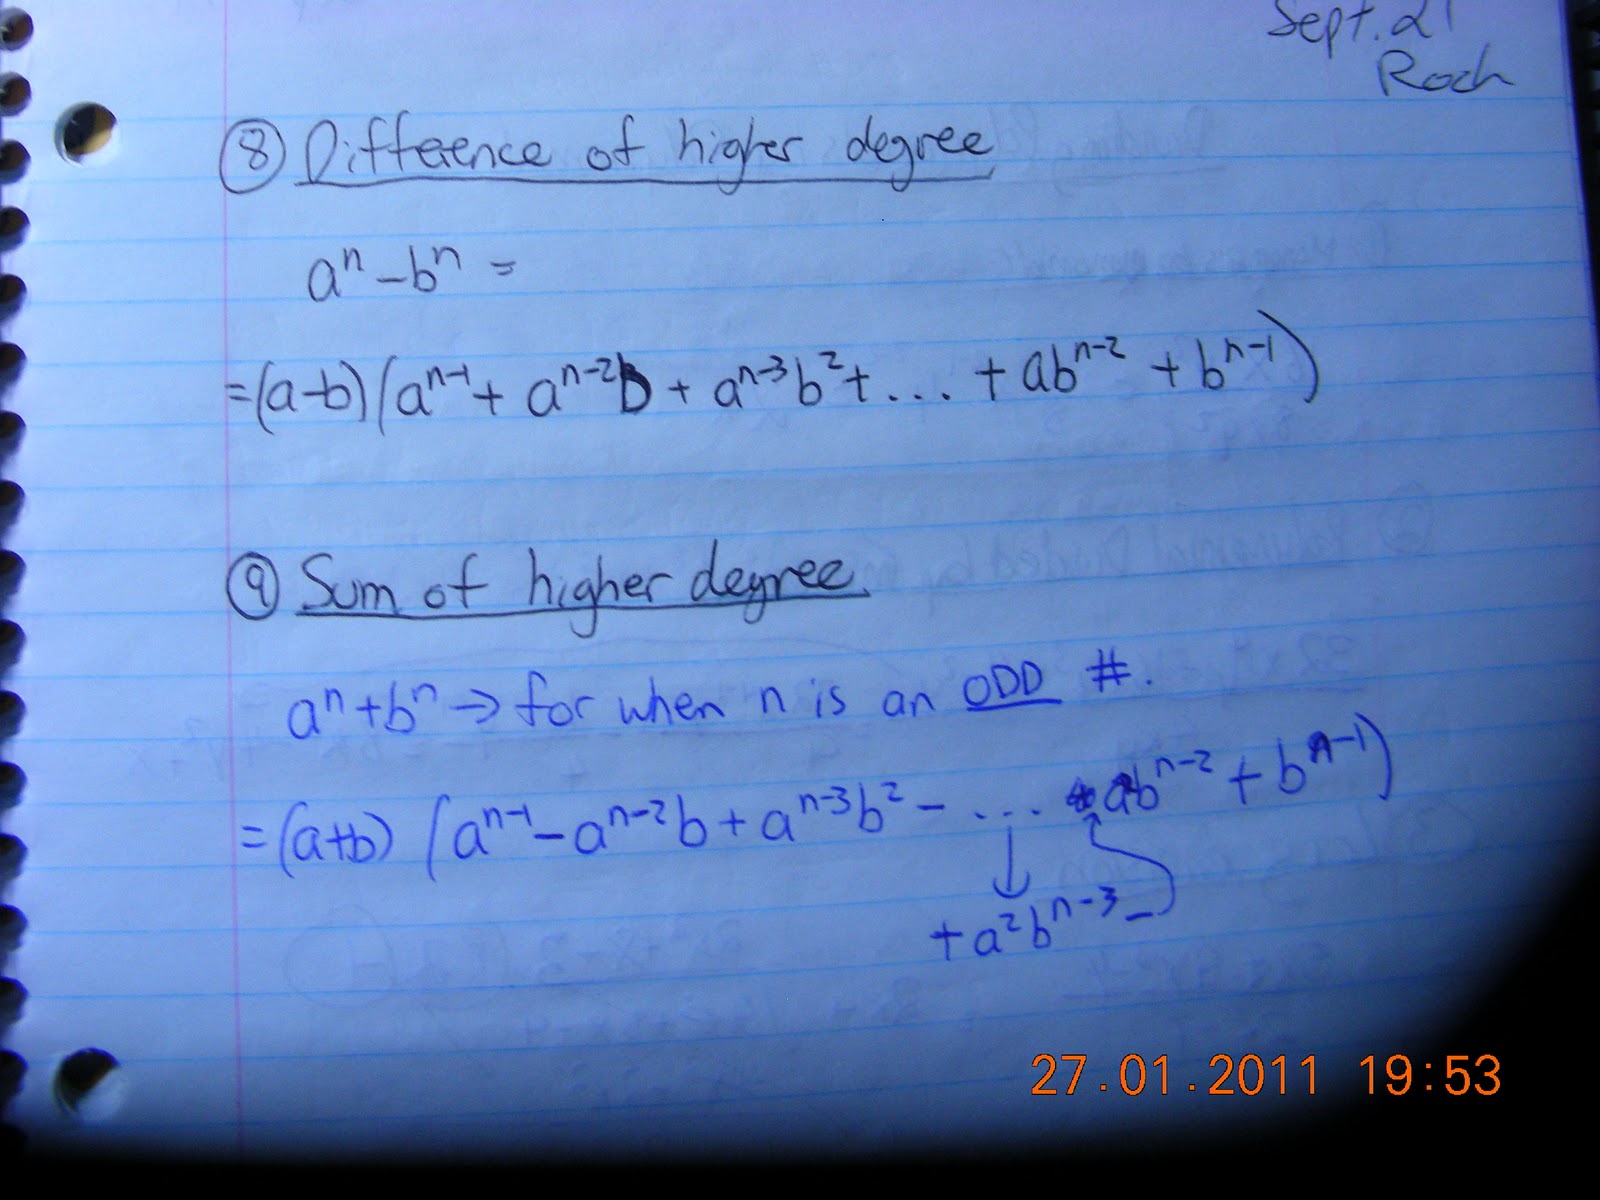 Sept. 21
Roch
⑧ Difference of higher degree
aⁿ - bⁿ =
= (a-b)(aⁿ⁻¹ + aⁿ⁻²b + aⁿ⁻³b² + ... + abⁿ⁻² + bⁿ⁻¹)
⑨ Sum of higher degree.
aⁿ + bⁿ → for when n is an ODD #.
= (a+b) (aⁿ⁻¹ - aⁿ⁻²b + aⁿ⁻³b² - ... abⁿ⁻² + bⁿ⁻¹)
+ a²bⁿ⁻³ -
27.01.2011 19:53